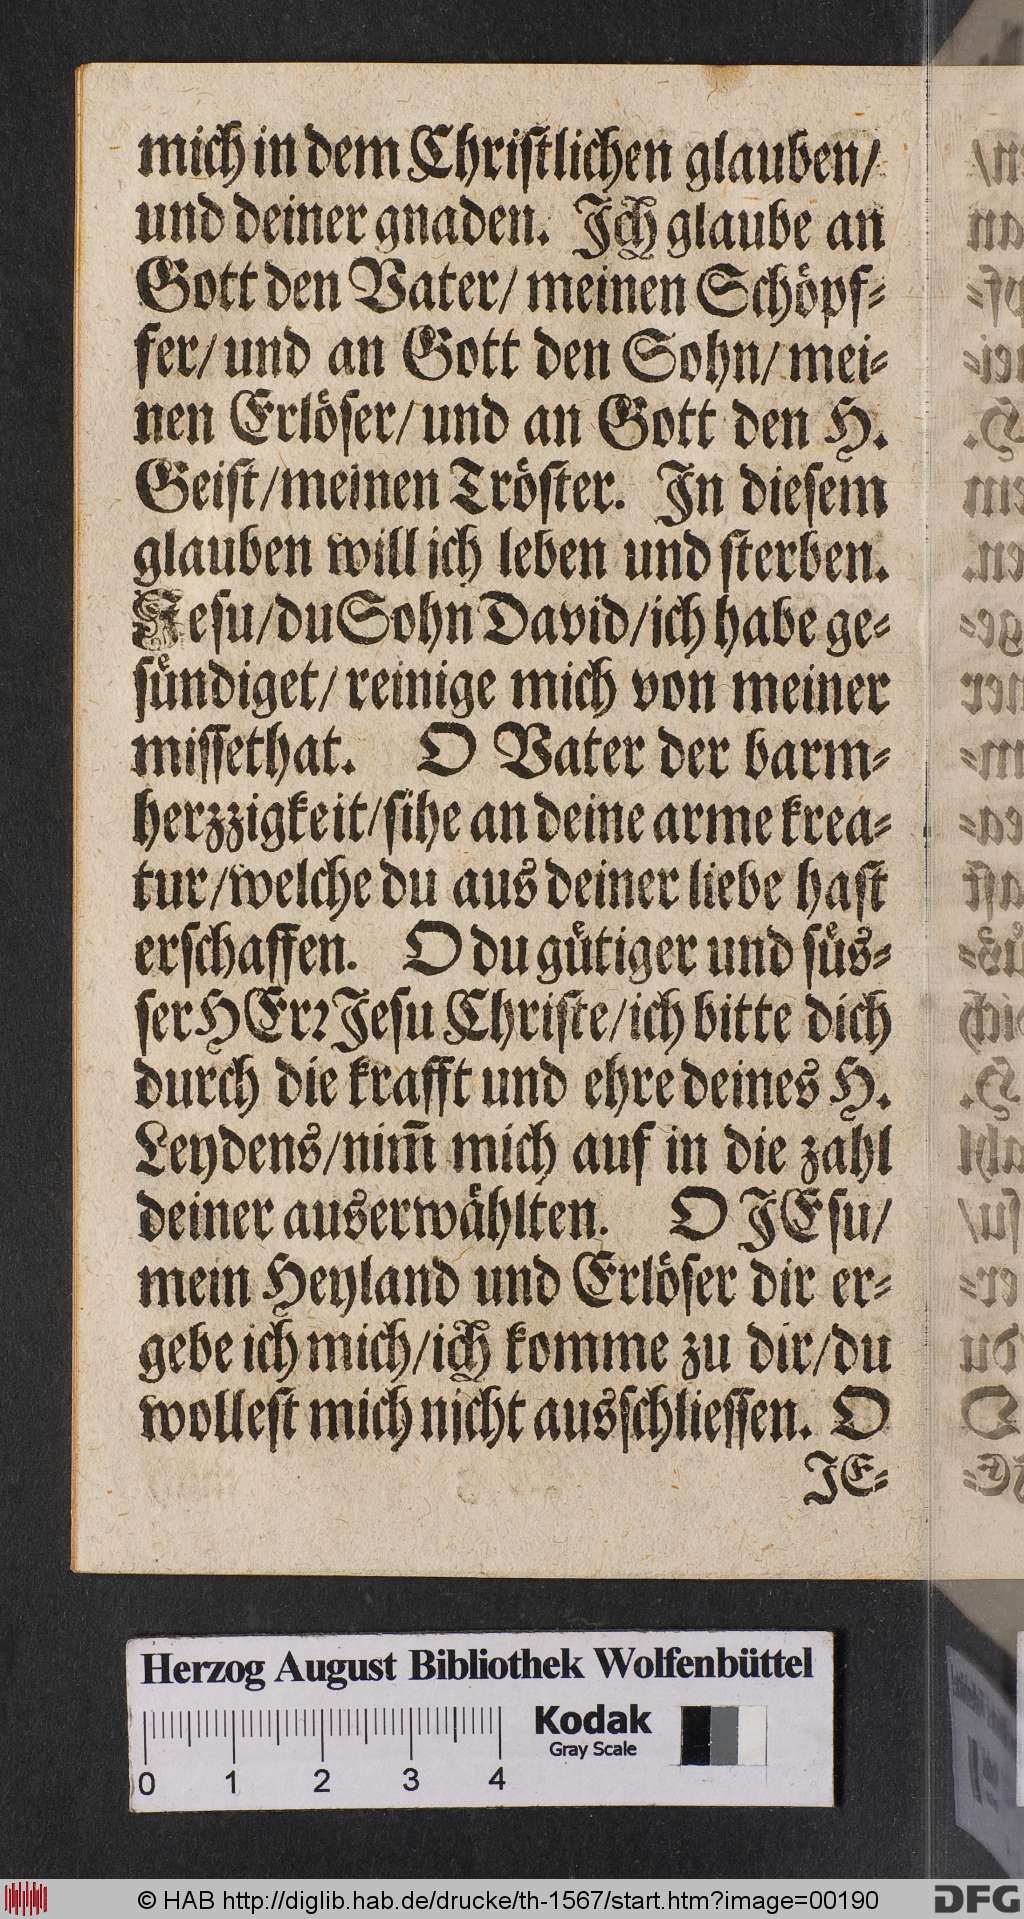 mich in dem Christlichen glauben/
und deiner gnaden. Jch glaube an
Gott den Vater/ meinen Schöpf-
fer/ und an Gott den Sohn/ mei-
nen Erlöser/ und an Gott den H.
Geist/ meinen Tröster. Jn diesem
glauben will ich leben und sterben.
Jesu/ du Sohn David/ ich habe ge-
sündiget/ reinige mich von meiner
missethat. O Vater der barm-
herzzigkeit/ sihe an deine arme krea-
tur/ welche du aus deiner liebe hast
erschaffen. O du gütiger und süs-
ser HErꝛ Jesu Christe/ ich bitte dich
durch die krafft und ehre deines H.
Leydens/ nim̅ mich auf in die zahl
deiner auserwählten. O JEsu/
mein Heyland und Erlöser dir er-
gebe ich mich/ ich komme zu dir/ du
wollest mich nicht ausschliessen. O
JE-
Herzog August Bibliothek Wolfenbüttel
Kodak
Gray Scale
0 1 2 3 4
© HAB http://diglib.hab.de/drucke/th-1567/start.htm?image=00190
DFG